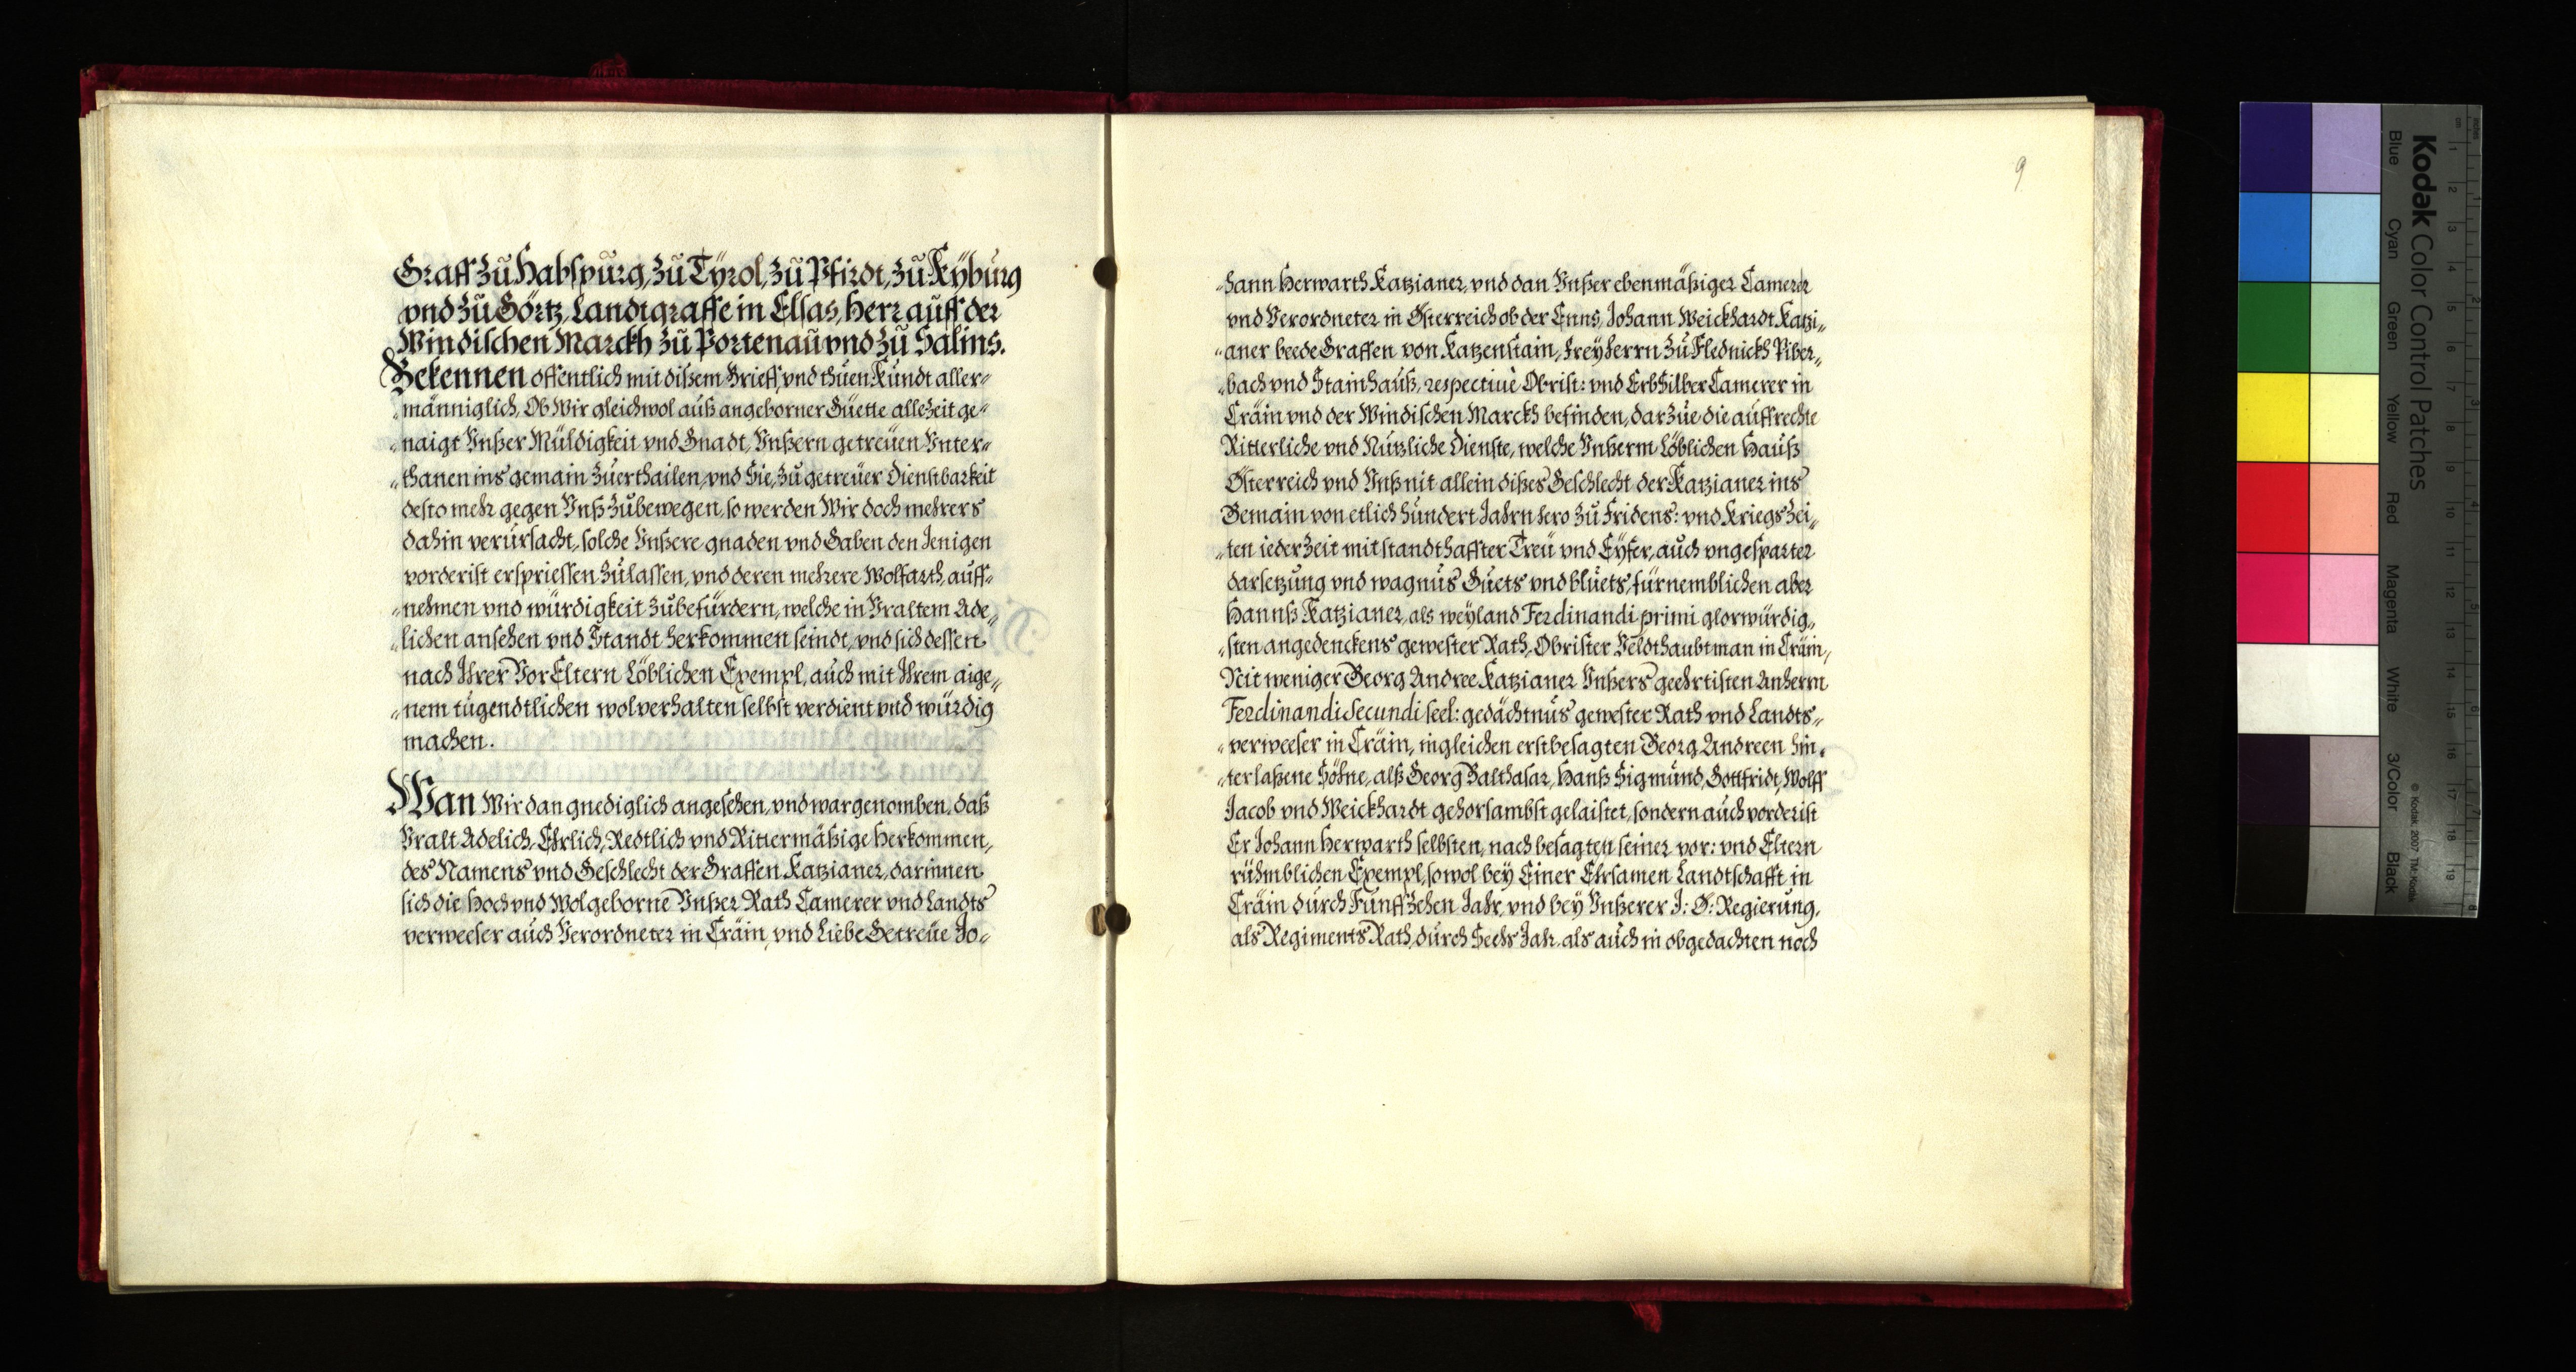 Graff zu Habspurg, zu Tÿrol, zu Pfirdt, zu Kÿburg
vnd zu Görtz, Landtgraffe in Elsas, Herr auff der
Windischen Marckh zu Portenau vnd zu Salins.
Bekennen offentlich mit dißem Brieff, vnd thuen kundt aller-
männiglich, Ob Wir gleichwol auß angeborner Güette allezeit ge-
naigt Vnßer Müldigkeit vnd Gnadt, Vnßern getreuen Vnter-
thanen ins gemain zuerthailen, vnd Sie, zu getreuer Dienstbarkeit
desto mehr gegen Vnß zubewegen, so werden Wir doch mehrers
dahin verursacht, solche Vnßere gnaden vnd Gaben den Jenigen
vorderist erspriessen zulassen, vnd deren mehrere Wolfarth, auff-
nehmen vnd würdigkeit zubefürdern, welche in Vraltem Ade-
lichen ansehen vnd Standt herkommen seindt, vnd sich dessen
nach Ihrer VorEltern Löblichen Exempl, auch mit Ihrem aige-
nem tugendtlichen wolverhalten selbst verdient vnd würdig
machen.
Wan Wir dan gnediglich angesehen, vnd wargenomben, daß
Vralt Adelich, Ehrlich, Redtlich vnd Rittermäßige Herkommen,
des Namens vnd Geschlecht der Graffen Katzianer, darinnen
sich die Hoch vnd Wolgeborne Vnßer Rath Camerer vnd Landts
verweeser auch Verordneter in Cräin, vnd Liebe Getreüe Jo-
9
hann Herwarth Katzianer, vnd dan Vnßer ebenmäßiger Camerer
vnd Verordneter in Österreich ob der Enns, Johann Weickhardt Katzi-
aner beede Graffen von Katzenstain, Freÿherrn zu Flednickh Piber-
bach vnd Stainhauß, respectiuè Obrist: vnd ErbSilber Camerer in
Cräin vnd der Windischen Marckh befinden, darzue die auffrechte
Ritterliche vnd Nutzliche Dienste, welche Vnßerm Löblichen Hauß
Österreich vnd Vnß nit allein dißes Geschlecht der Katzianer ins
Gemain von etlich hundert Jahrn hero zu Fridens: vnd Kriegs Zei-
ten iederzeit mit standthaffter Treü vnd Eÿfer, auch vngesparter
darsetzung vnd wagnus Guets vnd bluets, fürnemblichen aber
Hannß Katzianer, als weÿland Ferdinandi primi glorwürdig-
sten angedenckens gewester Rath, Obrister Veldthaubtman in Cräin,
Nit weniger Georg Andree Katzianer Vnßers geehrtisten Anherrn
Ferdinandi Secundi seel: gedächtnus gewester Rath vnd Landts-
verweeser in Cräin, ingleichen erstbesagten Georg Andreen hin-
terlaßene Söhne, alß Georg Balthasar, Hanß Sigmund, Gottfridt, Wolff
Jacob vnd Weickhardt gehorsambst gelaistet, sondern auch vorderist
Er Johann Herwarth selbsten, nach besagten seiner vor: vnd Eltern
rühmblichen Exempl, so wol bey Einer Ehrsamen Landtschafft in
Cräin durch Funffzehen Jahr, vnd beÿ Vnßerer I: Ö: Regierung,
als Regiments Rath, durch Sechs Jahr, als auch in obgedachten noch
Kodak Color Control Patches
Blue Cyan Green Yellow Red Magenta White 3/Color Black
© Kodak, 2007 TM: Kodak